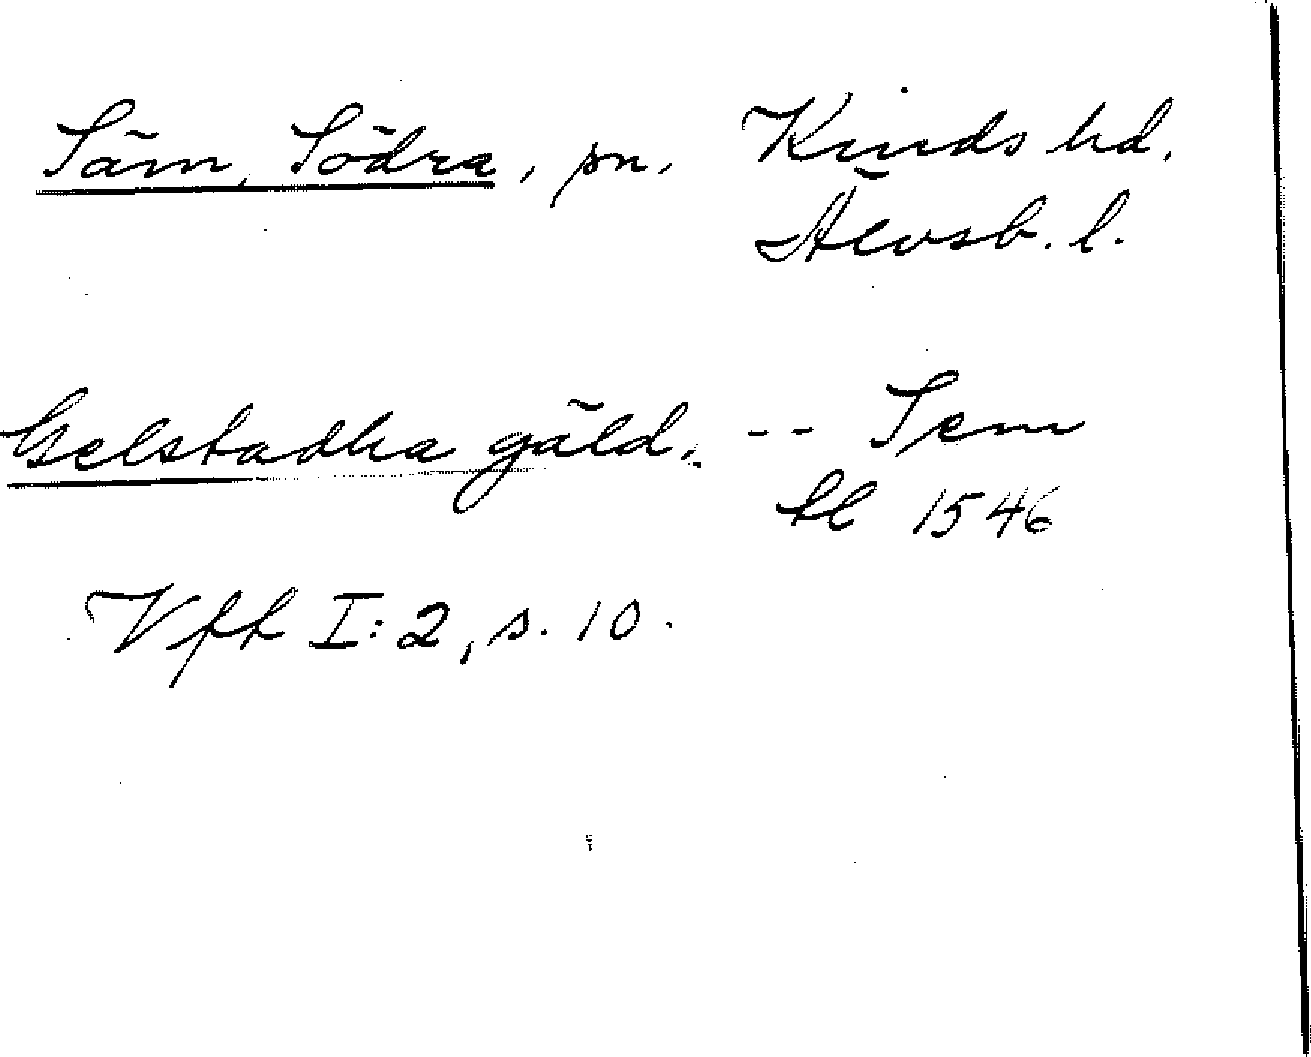 Säm, Södra, sn, Kinds hd.
Älvsb. l.
Gelstadha gäld. -- Sem
fl 1546
Vff I:2, s. 10.